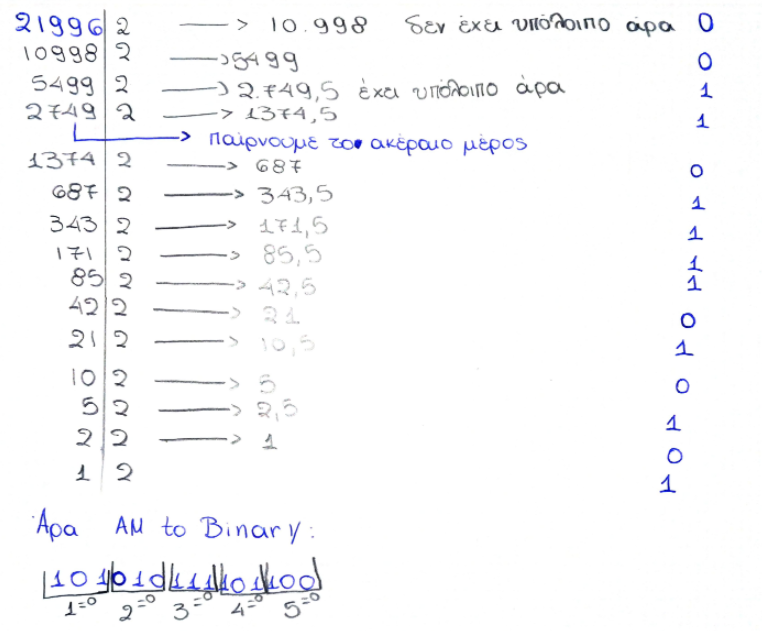 21996 2 → 10.998 δεν έχει υπόλοιπο άρα 0
10998 2 → 5499 0
5499 2 → 2.749,5 έχει υπόλοιπο άρα 1
2749 2 → 1374,5 1
→ παίρνουμε το ακέραιο μέρος
1374 2 → 687 0
687 2 → 343,5 1
343 2 → 171,5 1
171 2 → 85,5 1
85 2 → 42,5 1
42 2 → 21 0
21 2 → 10,5 1
10 2 → 5 0
5 2 → 2,5 1
2 2 → 1 0
1 2 1
Άρα ΑΜ to Binary:
101 010 111 101 100
1=º 2=º 3=º 4=º 5=º